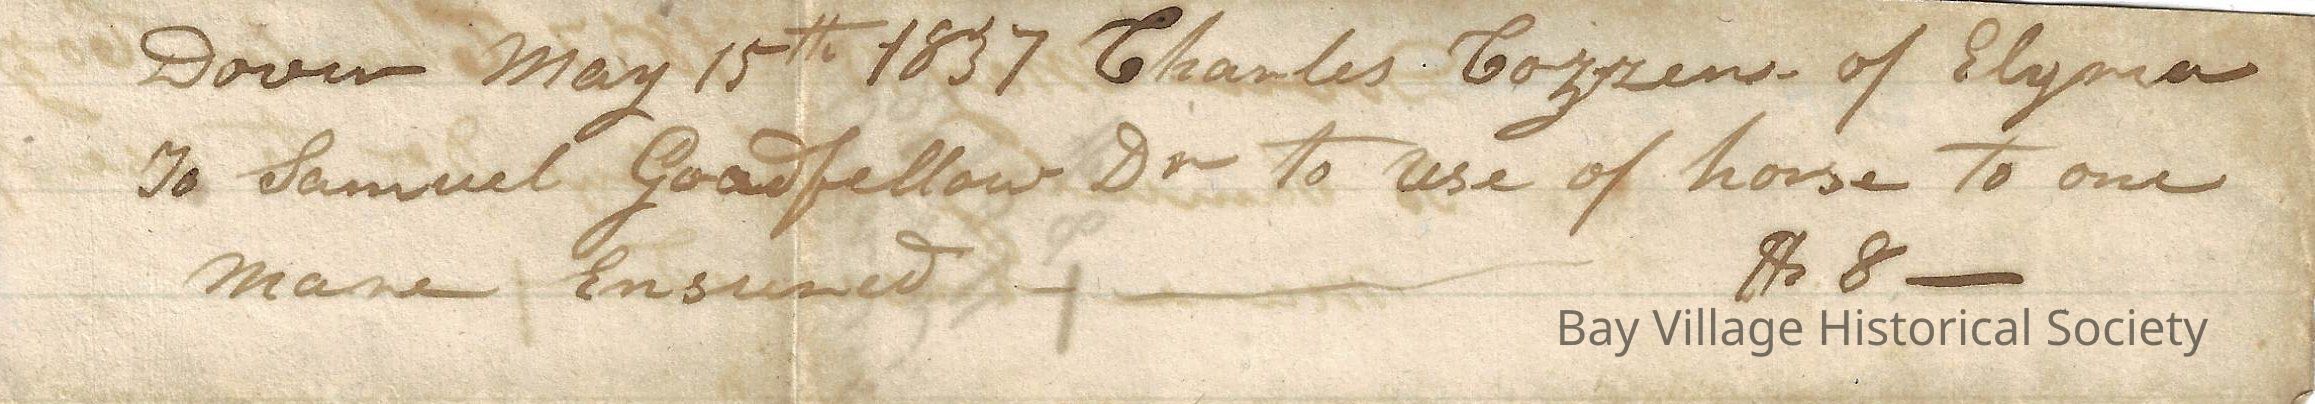 Dover May 15th 1837 Charles Cozzens of Elyria
To Samuel Goodfellow Dr to use of horse to one
Mare Ensured — $ 8 —
Bay Village Historical Society